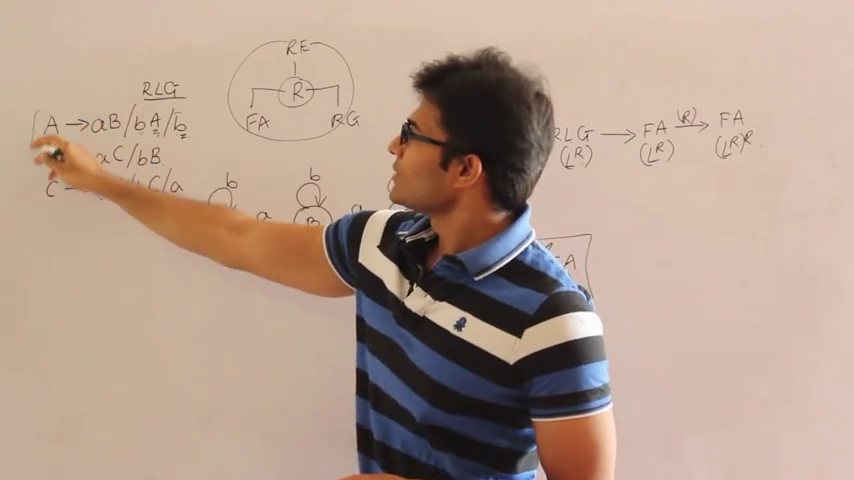 RLG
A → aB / bA / b
aC / bB
C C / a
RE
R
FA RG
b
b
a
B
a
RLG → FA (R)→ FA
(L^R) (L^R) (L^R)^R
A